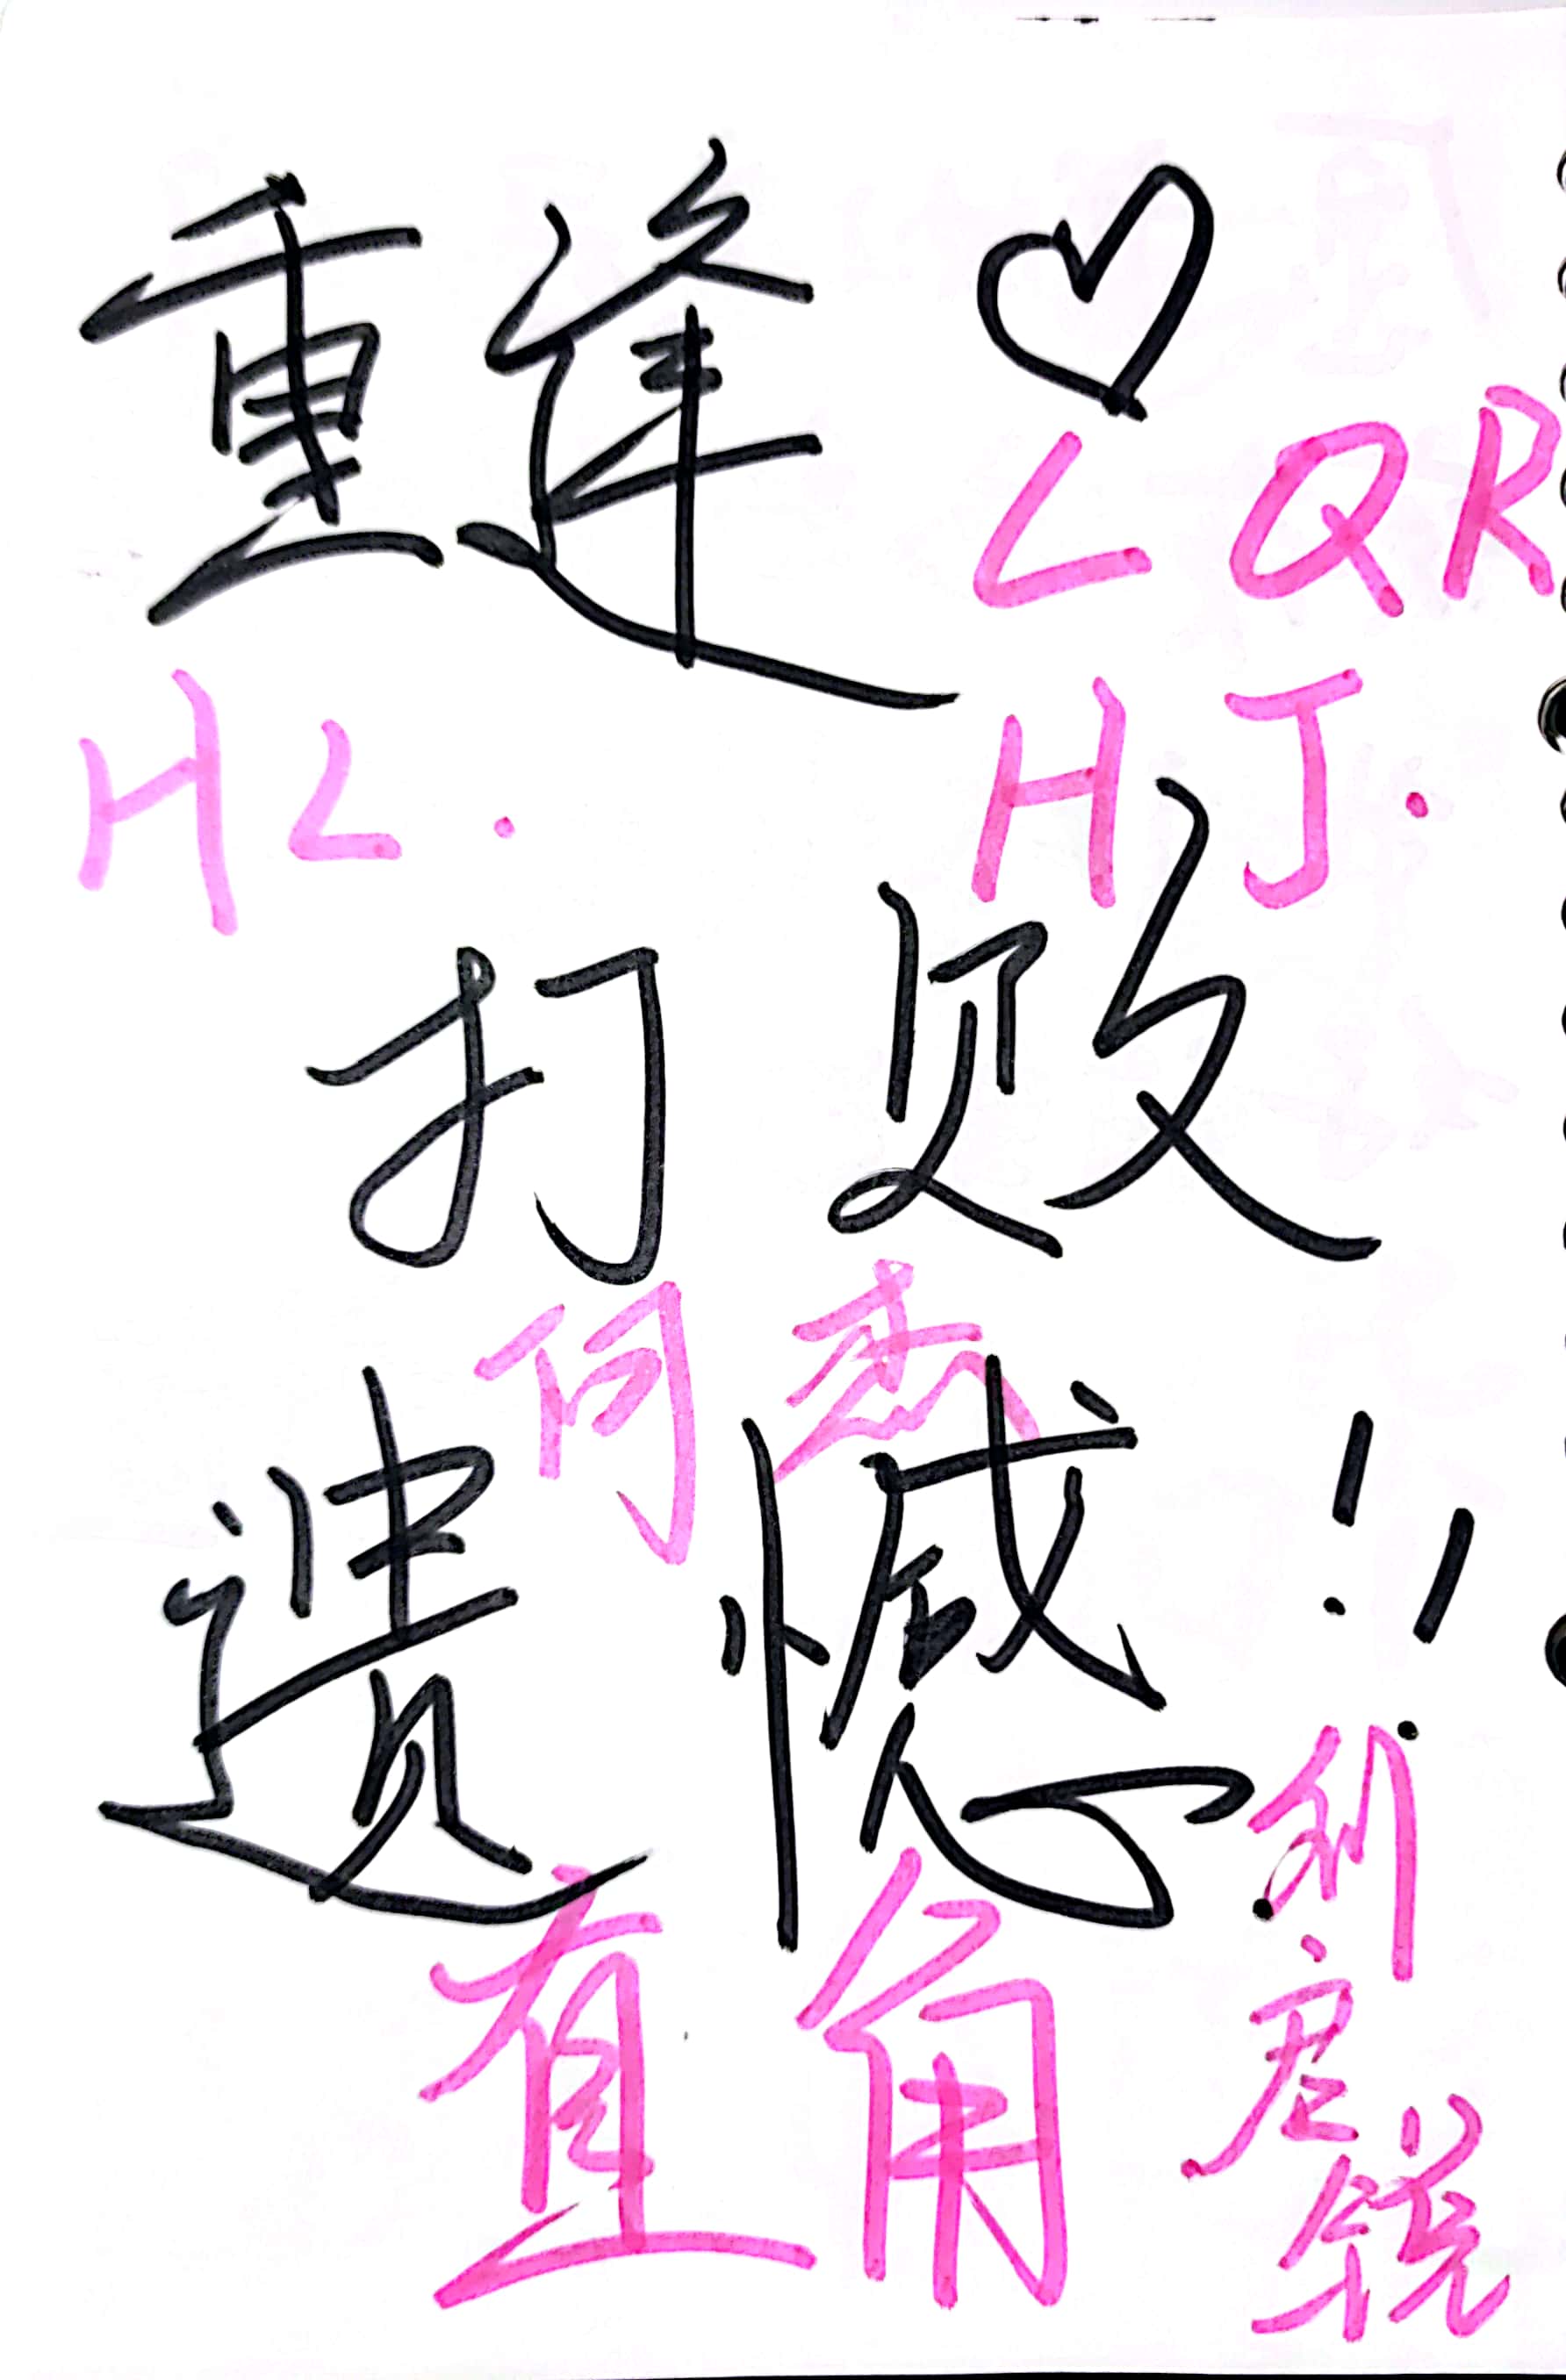 重逢♡
LQR
HL.
HJ.
打败
何杰
遗憾!!
直角
刘启锐